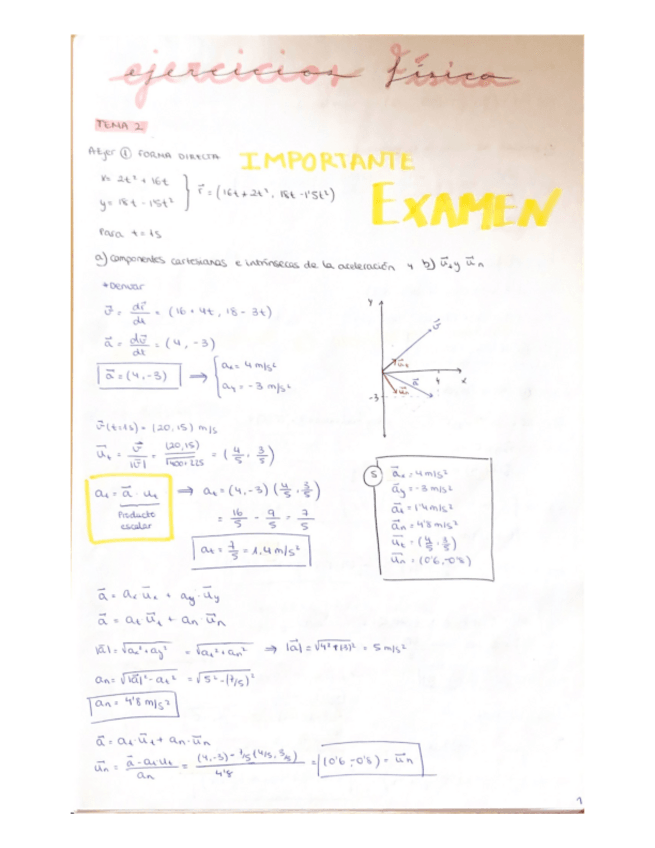 ejercicios física
TEMA 2
① FORMA DIRECTA IMPORTANTE
EXAMEN
x= 2t² + 16t
y= 18t - 1'5t² } r⃗ = (16t + 2t², 18t - 1'5t²)
Para t=1s
a) componentes cartesianas e intrínsecas de la aceleración y b) u⃗t y u⃗n
*Derivar
v⃗ = dr⃗/dt = (16 + 4t, 18 - 3t)
a⃗ = dv⃗/dt = (4, -3)
a⃗ = (4, -3) ⇒ { ax= 4 m/s²
ay= -3 m/s²
y
v⃗
u⃗t
a⃗
4
x
u⃗n
-3
v⃗(t=1s) = (20, 15) m/s
u⃗t = v⃗/|v⃗| = (20,15)/√400+225 = (4/5, 3/5)
at = a⃗ · ut ⇒ at = (4,-3)(4/5, 3/5)
Producto
escalar
= 16/5 - 9/5 = 7/5
at = 7/5 = 1,4 m/s²
S
a⃗x = 4 m/s²
a⃗y = -3 m/s²
a⃗t = 1'4 m/s²
a⃗n = 4'8 m/s²
u⃗t = (4/5, 3/5)
u⃗n = (0'6, -0'8)
a⃗ = ax u⃗x + ay · u⃗y
a⃗ = at u⃗t + an u⃗n
|a⃗| = √ax²+ay² = √at²+an² ⇒ |a⃗| = √4²+(-3)² = 5 m/s²
an = √|a⃗|² - at² = √5² - (7/5)²
an = 4'8 m/s²
a⃗ = at · u⃗t + an · u⃗n
u⃗n = a⃗ - at·ut/an = (4,-3) - 7/5 (4/5, 3/5)/4'8 = (0'6, -0'8) = u⃗n
1